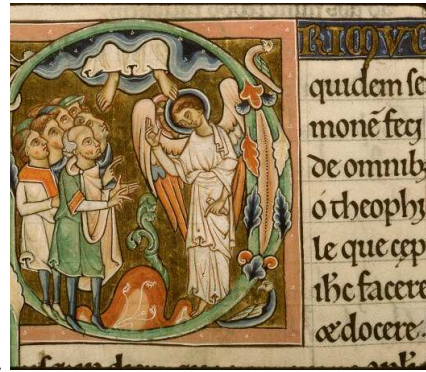 RIMVC
quidem ser
monē feci
de omnib;
o theophi
le que cep
ihc facere
& docere.